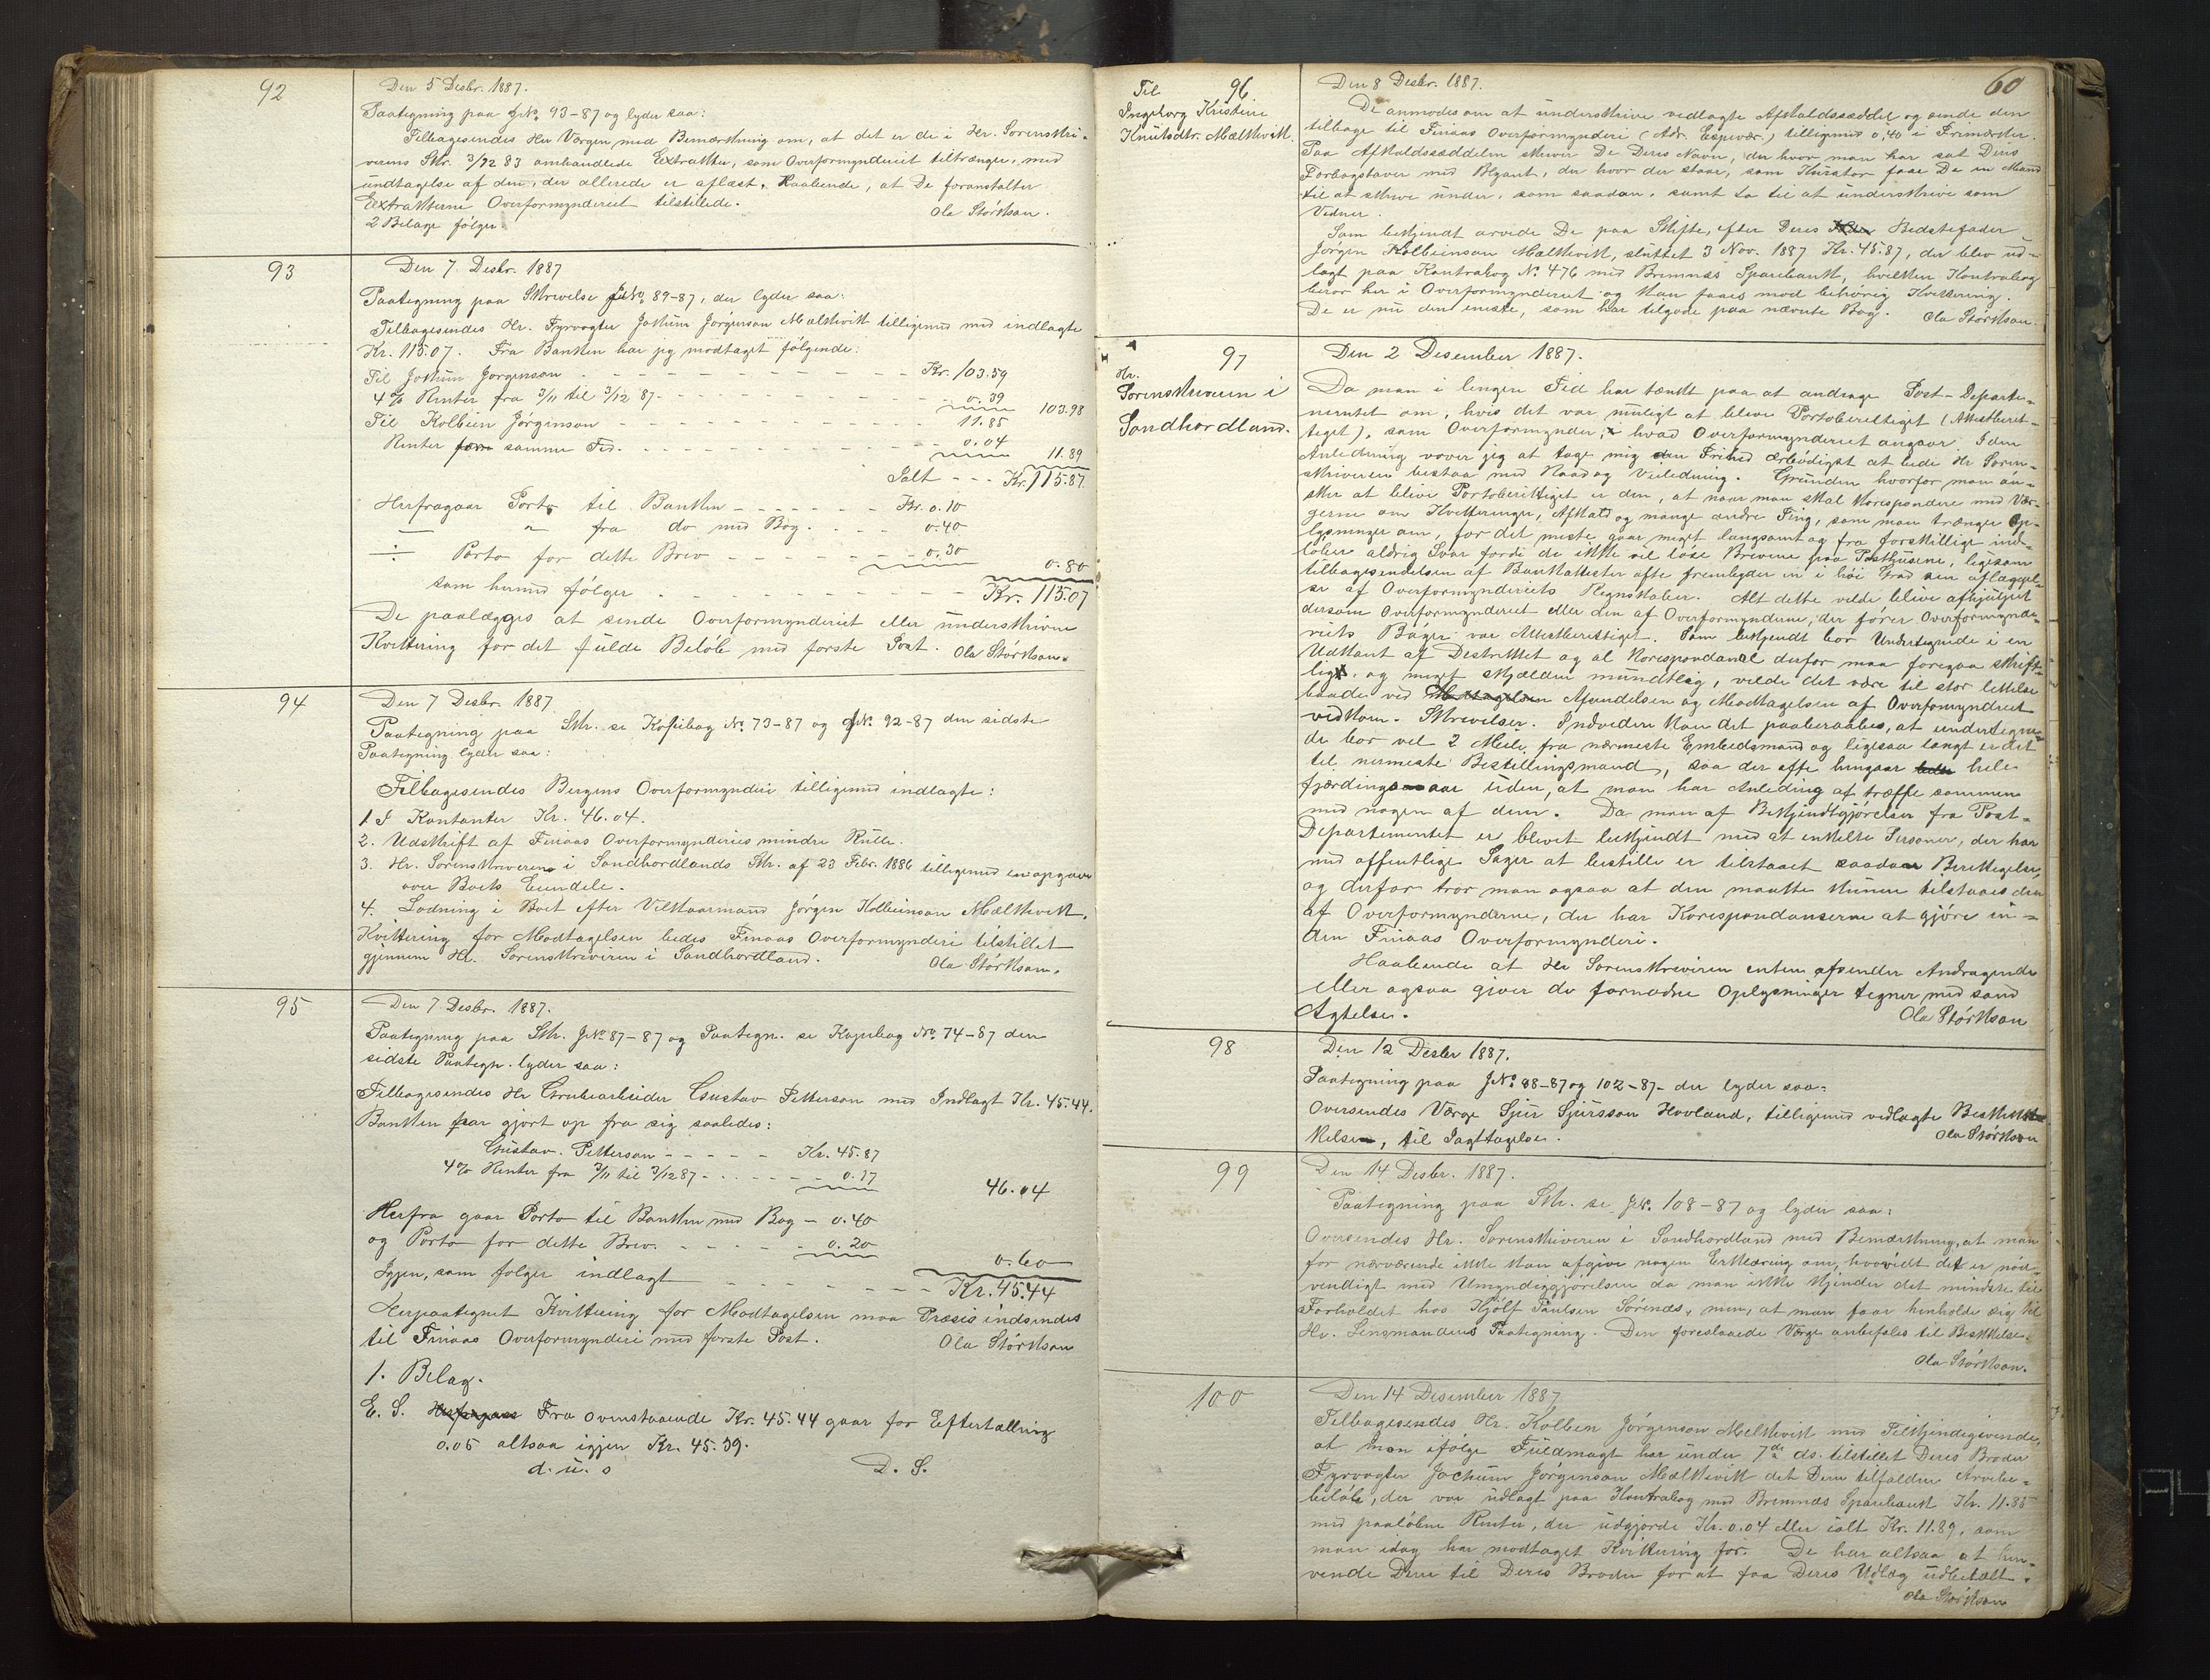 92
Den 5 Desbr. 1887.
Paategning paa JNo. 93-87 og lyder saa:
Tilbagesendes Hr Værgen med Bemærkning om, at det er de i Hr. Sorenskri-
verens Skr. 3/12 83 omhandlede Extrakter, som Overformynderiet tiltrænger, med
undtagelse af den, der allerede er aflæst. Haabende, at De foranstalter
Extrakterne Overformynderiet tilstillede.
Ola Störkson.
2 Bilage følger.
93
Den 7. Desbr. 1887
Paategning paa Skrivelse JNo. 89-87, der lyder saa:
Tilbagesendes Hr. Fyrvogter Jokum Jörgenson Mælkevik tilligemed med indlagte
Kr. 115.07. Fra Banken har jeg modtaget følgende:
Til Jokum Jörgenson - - - Kr. 103.59
4% Renter fra 3/11 til 3/12 87 - - - 0.39 103.98
Til Kolbein Jörginson - - - 11.85
Renter samme Tid. - - - 0.04 11.89
Ialt - - - Kr. 115.87
Herfragaar Porto til Banken - - - Kr. 0.10
— " fra do med Bog - - - 0.40
÷ Porto for dette Brev - - - 0.30 0.80
som hermed følger - - - Kr. 115.07
De paalægges at sende Overformynderiet eller underskrivne
Kvittering for det fulde Beløb med første Post. Ola Störkson.
94
Den 7 Desbr. 1887
Paategning paa Skr. se Kopibog No. 73-87 og JNo. 92-87 den sidste
Paategning lyder saa:
Tilbagesendes Bergens Overformynderi tilligemed indlagte:
1. I Kontanter Kr. 46.04.
2. Udskrift af Finaas Overformynderies mindre Rulle.
3. Hr. Sorenskriverens i Søndhordlands Skr. af 23 Febr. 1886 tilligemed en opgave
over Boets Eiendele.
4. Lodning i Boet efter Vilkaarmand Jörgen Kolbeinson Mælkevik.
Kvittering for Modtagelsen bedes Finaas Overformynderi tilstillet
gjennem Hr. Sorenskriveren i Søndhordland.
Ola Störkson.
95
Den 7 Desbr. 1887.
Paategning paa Skr. JNo 87-87 og Paategn. se Kopibog No. 74-87 den
sidste Paategn. lyder saa:
Tilbagesendes Hr Grubearbeider Gustav Petterson med Indlagt Kr. 45.44.
Banken har gjort op fra sig saaledes:
Gustav Petterson - - - Kr. 45.87
4% Renter fra 3/11 til 3/12 87 - - - 0.17 46.04
Herfra gaar Porto til Banken med Bog - 0.40
og Porto for dette Brev. - - - 0.20 0.60
Igjen, som følger indlagt - - - Kr. 45.44
Herpaategnet Kvittering for Modtagelsen maa Præsis indsendes
til Finaas Overformynderi med første Post.
Ola Störkson
1. Bilag.
E. S. Fra ovenstaaende Kr. 45.44 gaar for Eftertælling
0.05 altsaa igjen Kr. 45.39.
d. u. s
D. S.
60
Til 96
Ingeborg Kristine
Knutsdtr. Mælkevik.
Den 8 Desbr. 1887.
De anmodes om at underskrive vedlagte Afkaldsseddel og sende den
tilbage til Finaas Overformynderi (Adr. Espevær.) tilligemed 0,40 i Frimerker.
Paa Afkaldsseddelen skriver De Deres Navn, der hvor man har sat Deres
Forbogstaver med Blyant, der hvor der staar, som Kurator faar De en Mand
til at skrive under, som saadan, samt to til at underskrive som
Vidner.
Som bekjendt arvede De paa Skifte, efter Deres Bedstefader
Jörgen Kolbeinson Mælkevik, sluttet 3 Nov. 1887 Kr. 45.87, der blev ud-
lagt paa Kontrabog No. 476 med Bremnæs Sparebank, hvilken Kontrabog
beror her i Overformynderiet og kan faaes mod behørig Kvittering.
De er nu den eneste, som har tilgode paa nævnte Bog.
Ola Störkson.
97
Hr.
Sorenskriveren i
Søndhordland.
Den 2 Desember 1887.
Da man i længere Tid har tænkt paa at andrage Post-Departe-
mentet om, hvis det var muligt at blive Portoberettiget (Attestberet-
tiget), som Overformynder, hvad Overformynderiet angaar. I den
Anledning vover jeg at tage mig den Frihed ærbödigst at bede Hr Soren-
skriveren bistaa med Raad og Veiledning. Grunden hvorfor man øn-
sker at blive Portoberettiget er den, at naar man skal korespondere med Vær-
gerne om Kvitteringer, Afkald og mange andre Ting, som man trænger Op-
lysninger om, for det meste gaar meget langsomt og fra forskillige ind-
løber aldrig Svar fordi de ikke vil løse Brevene paa Posthusene, ligesom
tilbagesendelsen af Bankattester ofte fremlyder en i høi Grad sen aflæggel-
se af Overformynderiets Regnskaber. Alt dette vilde blive afhjulpet
dersom Overformynderiet eller den af Overformynderne, der fører Overformynde-
riets Bøger var Attestberettiget. Som bekjendt bor Undertegnede i en
Udkant af Destriktet og al Korespondance derfor maa foregaa skrift-
ligt, og meget skjælden mundtlig, vilde det være til stor lettelse
baade ved Afsendelsen og Modtagelsen af Overformyndriet
vedkom. Skrivelser. Indvedere kan det paaberaabes, at undertegne-
de bor vel 2 Mile fra nærmeste Embedsmand og ligesaa langt er det
til nærmeste Bestillingsmand, saa der ofte hengaar hele
fjerdingsaar uden, at man har Anledning af træffe sammen
med nogen af dem. Da man af Bekjendtgjørelser fra Post-
Departementet er blevet bekjendt med at enkelte Personer, der har
med offentlige Sager at bestille er tilstaaet saadan Berettigelse,
og derfor tror man ogsaa at den maatte kunne tilstaaes den
af Overformynderne, der har Korespondanserne at gjøre in-
den Finaas Overformynderi.
Haabende at Hr Sorenskriveren enten afsender Andragende
eller ogsaa giver de fornødne Oplysninger tegner med sand
Agtelse.
Ola Störkson
98
Den 12 Desbr 1887.
Paategning paa JNo. 88-87 og 102-87- der lyder saa:
Oversendes Værge Sjur Sjursson Hovland, tilligemed vedlagte Beskik-
kelse, til Iagttagelse.
Ola Störkson
99
Den 14 Desbr. 1887.
Paategning paa Skr. se JNo. 108-87 og lyder saa:
Oversendes Hr. Sorenskriveren i Søndhordland med Bemærkning, at man
for nærværende ikke kan afgive nogen Erklæring om, hvorvidt det er nød-
vendigt med Umyndiggjörelsen da man ikke kjender det mindste til
Forholdet hos Hjölf Paulsen Sörenæs, men, at man faar henholde sig til
Hr. Lensmandens Paategning. Den foreslaaede Værge anbefales til Beskikkelse.
Ola Störkson.
100
Den 14 Desember 1887
Tilbagesendes Hr. Kolben Jörgenson Melkevik med Tilkjendegivende,
at man ifølge Fuldmagt har under 7de ds. tilstillet Deres Broder
Fyrvogter Jochum Jörgenson Mælkevik det Dem tilfaldne Arvebe-
beløb, der var udlagt paa Kontrabog med Bremnæs Sparebank Kr. 11.85
med paaløbne Renter, der udgjorde Kr. 0.04 eller ialt Kr. 11.89, som
man idag har modtaget Kvittering for. De har altsaa at hen-
vende Dem til Deres Broder for at faa Deres Udlæg udbetalt.
Ola Störkson